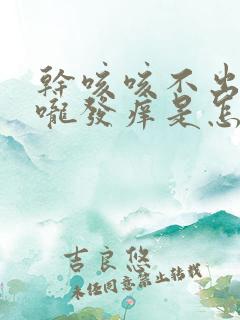 幹咳咳不出
嚨發癢是怎
吉良悠
未經同意禁止轉載